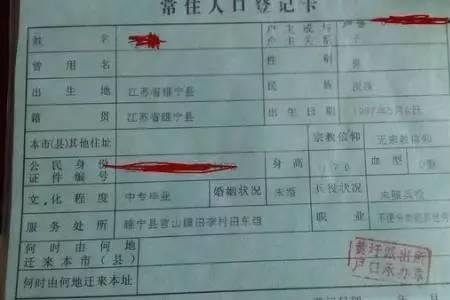 常住人口登记卡
姓名 户主或与户主关系 子
曾用名 性别 男
出生地 江苏省睢宁县 民族 汉族
籍贯 江苏省睢宁县 出生日期 1987年5月6日
本市(县)其他住址 宗教信仰 无宗教信仰
公民身份证件编号 身高 血型
文化程度 中专毕业 婚姻状况 未婚 兵役状况 未服兵役
服务处所 睢宁县官山镇田李村田东组 职业
何时由何地迁来本市(县)
何时由何地迁来本址
派出所
户口承办章